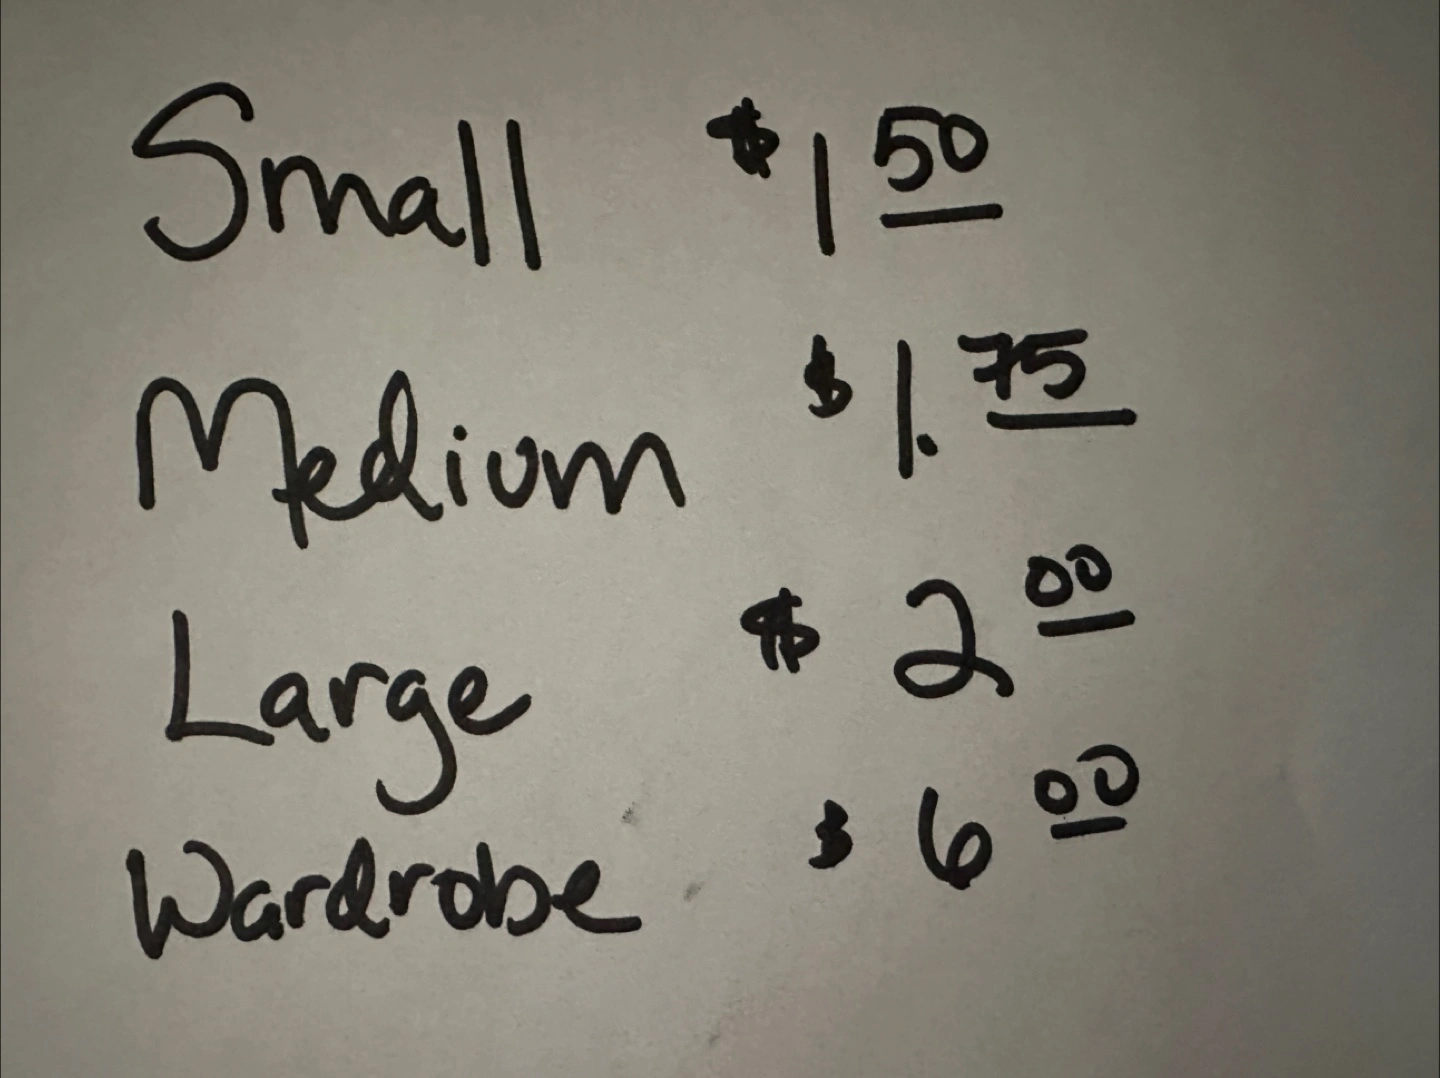 Small $1 50
Medium $1.75
Large $2 00
Wardrobe $6 00